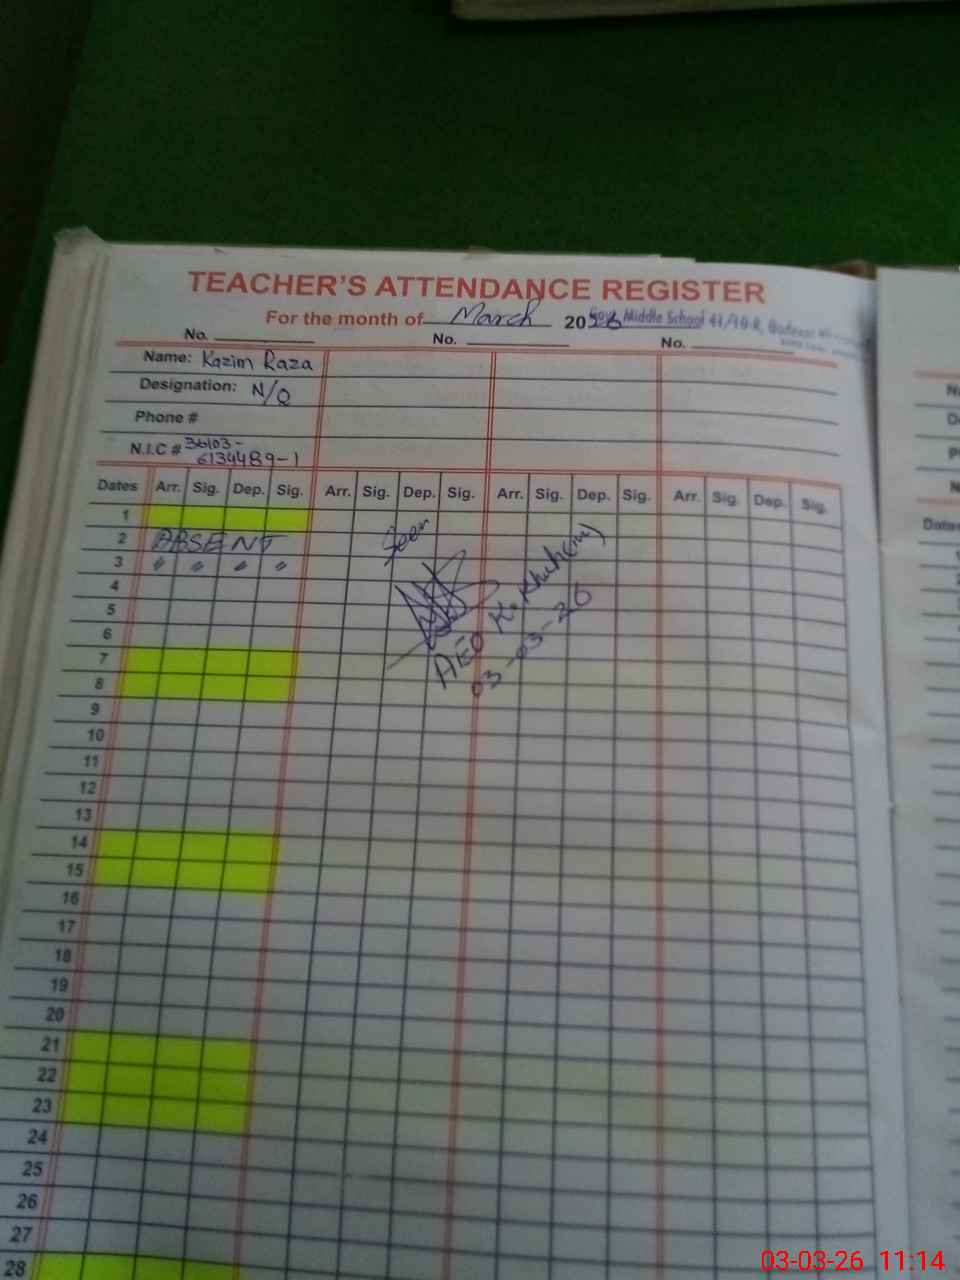 TEACHER'S ATTENDANCE REGISTER
For the month of March 2026
Govt Middle School
No. No. No.
Name: Kazim Raza
Designation: N/Q
Phone #
N.I.C # 36103-
6134489-1
Dates Arr. Sig. Dep. Sig. Arr. Sig. Dep. Sig. Arr. Sig. Dep. Sig. Arr. Sig. Dep. Sig.
1
2 ABSENT Seen
3 〃 〃 〃 〃
4
5
6
AEO
03-03-26
7
8
9
10
11
12
13
14
15
16
17
18
19
20
21
22
23
24
25
26
27
28
Dates
03-03-26 11:14